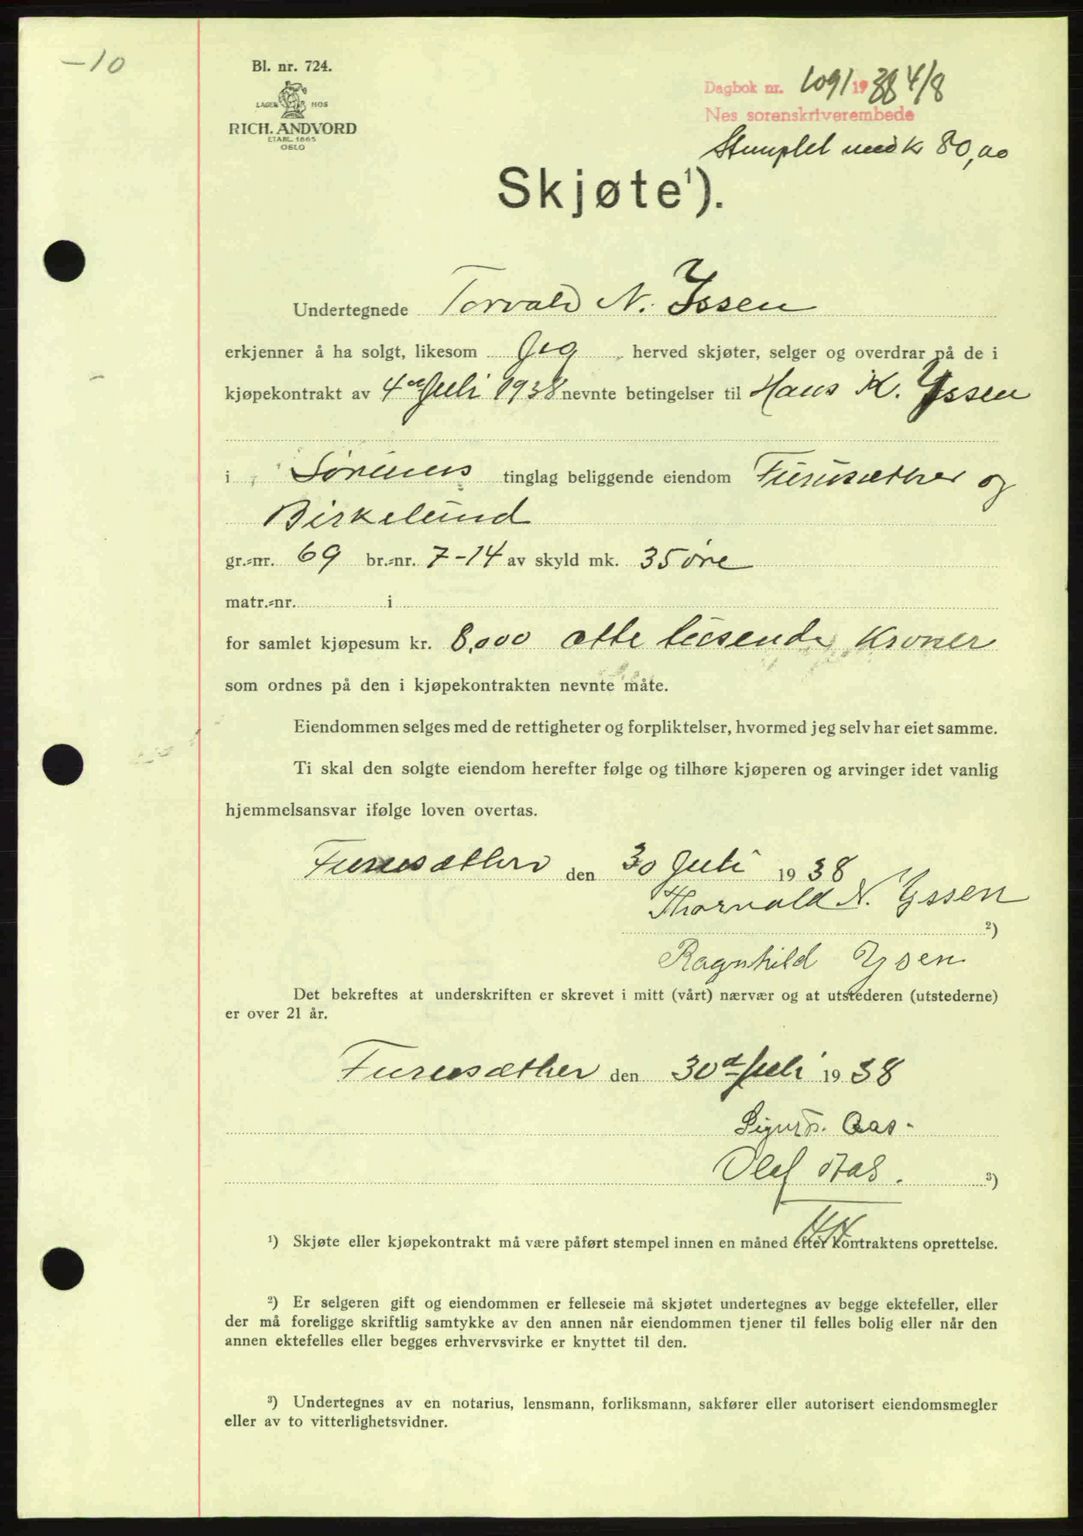 -10
Bl. nr. 724.
LAGER HOS
RICH. ANDVORD
ETABL. 1865
OSLO
Dagbok nr. 1091 1938 4/8
Nes sorenskriverembede
Stemplet med kr 80,00
Skjøte¹).
Undertegnede Torvald N. Yssen
erkjenner å ha solgt, likesom Jeg, herved skjøter, selger og overdrar på de i
kjøpekontrakt av 4de Juli 1938 nevnte betingelser til Hans K. Yssen
i tinglag beliggende eiendom Furusæther og
Birkelund
gr.-nr. 69 br.-nr. 7-14 av skyld mk. 35 øre
matr.-nr. i
for samlet kjøpesum kr. 8,000 otte tusende Kroner
som ordnes på den i kjøpekontrakten nevnte måte.
Eiendommen selges med de rettigheter og forpliktelser, hvormed jeg selv har eiet samme.
Ti skal den solgte eiendom herefter følge og tilhøre kjøperen og arvinger idet vanlig
hjemmelsansvar ifølge loven overtas.
Furusæther den 30 Juli 1938
Thorvald N. Yssen
²)
Ragnhild Ysen
Det bekreftes at underskriften er skrevet i mitt (vårt) nærvær og at utstederen (utstederne)
er over 21 år.
Furusæther den 30d Juli 1938
Sigurd. Aas.
Olaf Aas.
³)
¹) Skjøte eller kjøpekontrakt må være påført stempel innen en måned efter kontraktens oprettelse.
²) Er selgeren gift og eiendommen er felleseie må skjøtet undertegnes av begge ektefeller, eller
der må foreligge skriftlig samtykke av den annen når eiendommen tjener til felles bolig eller når den
annen ektefelles eller begges erhvervsvirke er knyttet til den.
³) Undertegnes av en notarius, lensmann, forliksmann, sakfører eller autorisert eiendomsmegler
eller av to vitterlighetsvidner.